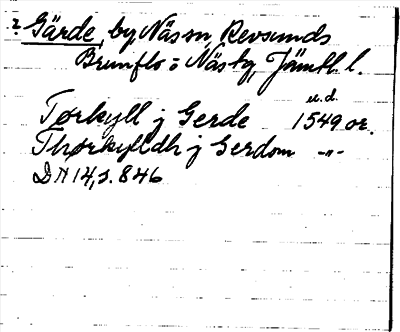 ? Gärde, by Näs sn, Revsunds
Brunflo o Näs tg, Jämtl. l.
u.d.
Tørkyll j Gerde 1549 or.
Thørkylldh j Gerdom -"-
DN 14, s. 846